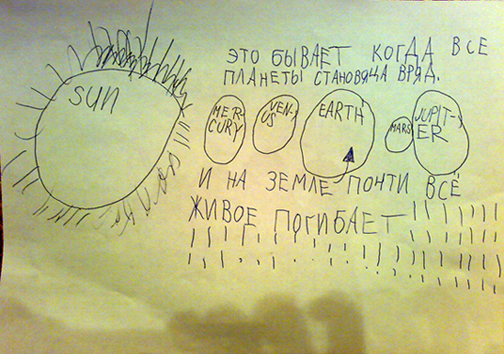 ЭТО БЫВАЕТ КОГДА ВСЕ
ПЛАНЕТЫ СТАНОВЯЦА ВРЯД.
SUN
MER-
CURY
VEN-
US
EARTH
MARS
JUPIT-
ER
И НА ЗЕМЛЕ ПОЧТИ ВСЁ
ЖИВОЕ ПОГИБАЕТ